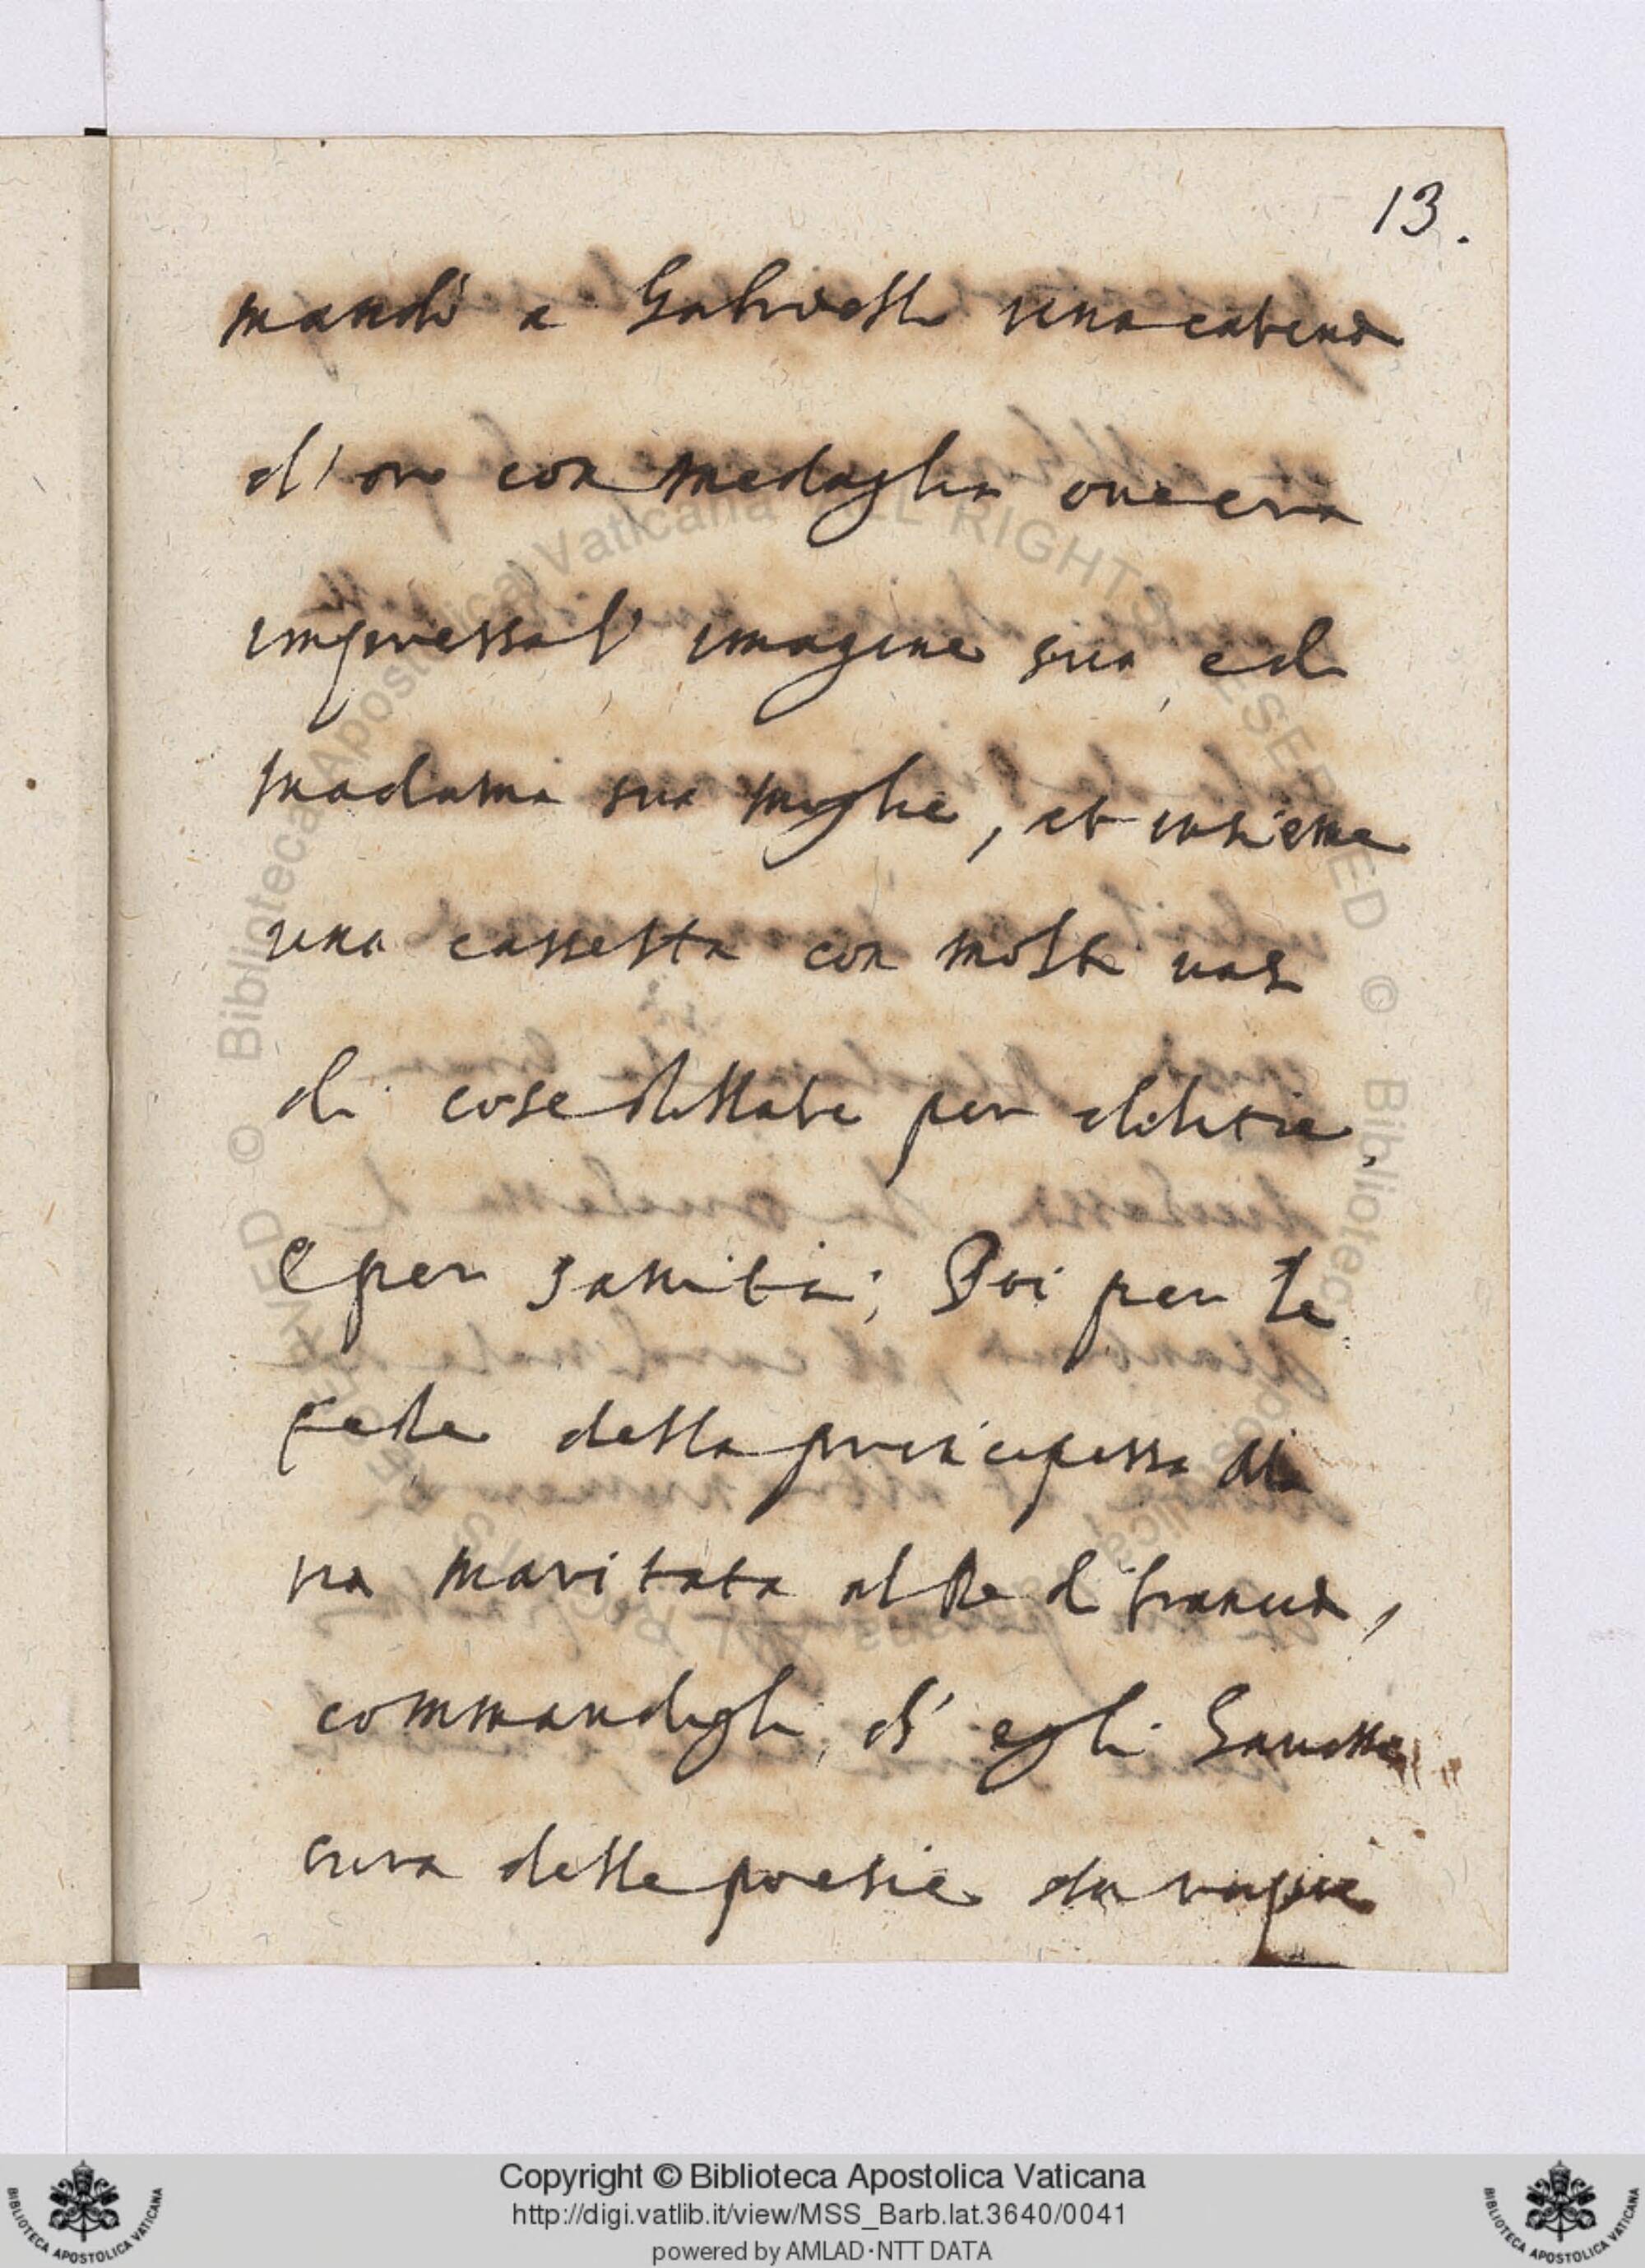 13.
mandò a Gabriello una catena
d'oro con medaglia ove era
impressa l' imagine sua, e di
madama sua moglie, et insieme
una cassetta con molti vasi
di cose stillate per delitie,
e per sanità; Poi per le
feste della principessa Ma
ria maritata al Re di francia,
commandogli, ch' egli havesse
cura delle poesie da
Copyright © Biblioteca Apostolica Vaticana
http://digi.vatlib.it/view/MSS_Barb.lat.3640/0041
powered by AMLAD·NTT DATA
BIBLIOTECA APOSTOLICA VATICANA
BIBLIOTECA APOSTOLICA VATICANA